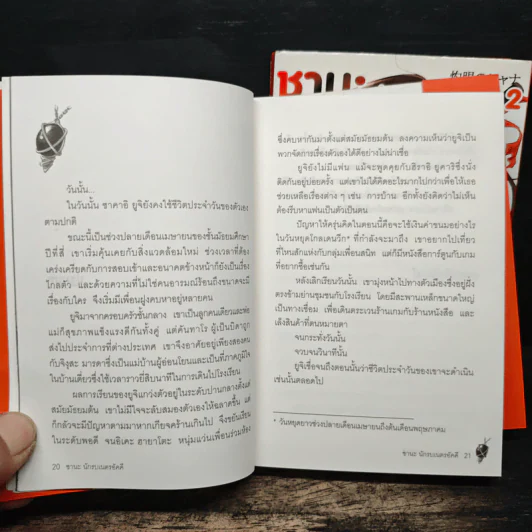 วันนั้น...
ในวันนั้น ซาคาอิ ยูจิยังคงใช้ชีวิตประจำวันของตัวเอง
ตามปกติ
ขณะนี้เป็นช่วงปลายเดือนเมษายนของชั้นมัธยมศึกษา
ปีที่สี่ เขาเริ่มคุ้นเคยกับสิ่งแวดล้อมใหม่ ช่วงเวลาที่ต้อง
เคร่งเครียดกับการสอบเข้าและอนาคตข้างหน้าก็ยังเป็นเรื่อง
ไกลตัว และด้วยความที่ไม่ใช่คนอารมณ์ร้อนถึงขนาดจะมี
เรื่องกับใคร จึงเริ่มมีเพื่อนฝูงคบหาอยู่หลายคน
ยูจิมาจากครอบครัวชั้นกลาง เขาเป็นลูกคนเดียวและพ่อ
แม่ก็สุขภาพแข็งแรงดีกันทั้งคู่ แต่คันทาโร่ ผู้เป็นบิดาถูก
ส่งไปประจำการที่ต่างประเทศ เขาจึงอาศัยอยู่เพียงสองคน
กับจิงุสะ มารดาซึ่งเป็นแม่บ้านผู้อ่อนโยนและเป็นที่ภาคภูมิใจ
ในบ้านเดี่ยวซึ่งใช้เวลาราวยี่สิบนาทีในการเดินไปโรงเรียน
ผลการเรียนของยูจิแกว่งตัวอยู่ในระดับปานกลางตั้งแต่
สมัยมัธยมต้น เขาไม่มีใจจะลับสมองตัวเองให้ฉลาดขึ้น แต่
ก็กลัวจะมีปัญหาตามมาหากเกียจคร้านเกินไป จึงขยันเรียน
ในระดับพอดี จนอิเคะ ฮายาโตะ หนุ่มแว่นเพื่อนร่วมห้อง
20 ชานะ นักรบเนตรอัคคี
ชานะ
灼眼のシャナ
2
ซึ่งคบหากันมาตั้งแต่สมัยมัธยมต้น ลงความเห็นว่ายูจิเป็น
พวกจัดการเรื่องตัวเองได้ดีอย่างไม่น่าเชื่อ
ยูจิยังไม่มีแฟน แม้จะพูดคุยกับฮิราอิ ยูคาริซึ่งนั่ง
ติดกันอยู่บ่อยครั้ง แต่เขาไม่ได้คิดอะไรมากไปกว่าเพื่อให้เธอ
ช่วยเหลือเรื่องต่าง ๆ เช่น การบ้าน อีกทั้งยังคิดว่าไม่เห็น
ต้องรีบหาแฟนเป็นตัวเป็นตน
ปัญหาให้ครุ่นคิดในตอนนี้คือจะใช้เงินค่าขนมอย่างไร
ในวันหยุดโกลเดนวีก* ที่กำลังจะมาถึง เขาอยากไปเที่ยว
ที่ไหนสักแห่งกับกลุ่มเพื่อนสนิท แต่ก็มีหนังสือการ์ตูนกับเกม
ที่อยากซื้อเช่นกัน
หลังเลิกเรียนวันนั้น เขามุ่งหน้าไปทางตัวเมืองซึ่งอยู่ฝั่ง
ตรงข้ามย่านชุมชนกับโรงเรียน โดยมีสะพานเหล็กขนาดใหญ่
เป็นทางเชื่อม เพื่อเดินตระเวนร้านเกมกับร้านหนังสือ และ
เล็งสินค้าที่ตนหมายตา
จนกระทั่งวันนั้น
จวบจนวินาทีนั้น
ยูจิเชื่อจนถึงตอนนั้นว่าชีวิตประจำวันของเขาจะดำเนิน
เช่นนั้นตลอดไป
* วันหยุดยาวช่วงปลายเดือนเมษายนถึงต้นเดือนพฤษภาคม
ชานะ นักรบเนตรอัคคี 21